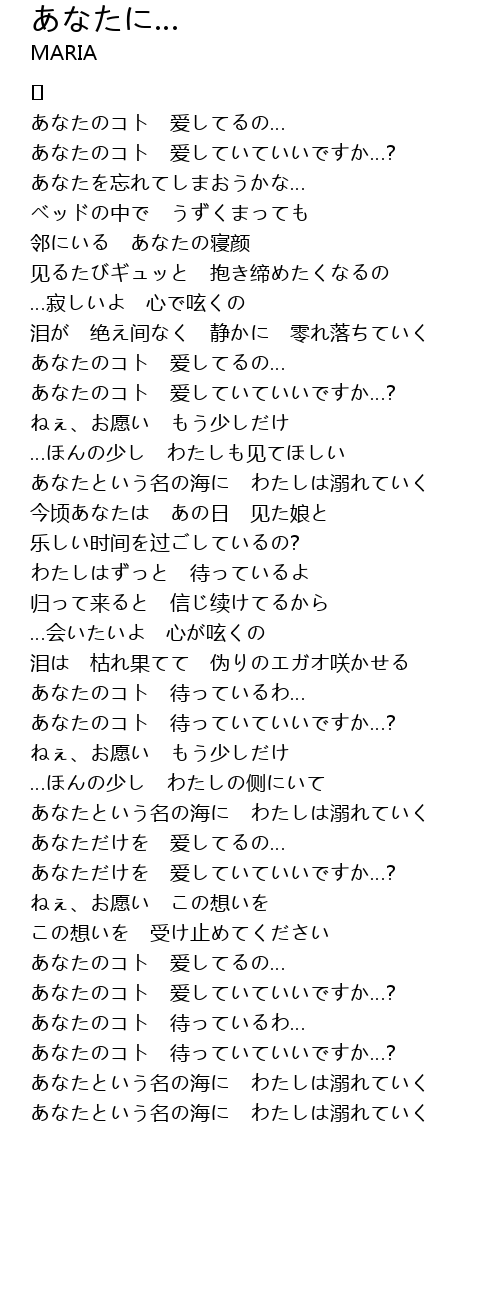 あなたに...
MARIA
[]
あなたのコト　爱してるの...
あなたのコト　爱していていいですか...?
あなたを忘れてしまおうかな...
ベッドの中で　うずくまっても
邻にいる　あなたの寝颜
见るたびギュッと　抱き缔めたくなるの
...寂しいよ　心で呟くの
泪が　绝え间なく　静かに　零れ落ちていく
あなたのコト　爱してるの...
あなたのコト　爱していていいですか...?
ねぇ、お愿い　もう少しだけ
...ほんの少し　わたしも见てほしい
あなたという名の海に　わたしは溺れていく
今顷あなたは　あの日　见た娘と
乐しい时间を过ごしているの?
わたしはずっと　待っているよ
归って来ると　信じ续けてるから
...会いたいよ　心が呟くの
泪は　枯れ果てて　伪りのエガオ咲かせる
あなたのコト　待っているわ...
あなたのコト　待っていていいですか...?
ねぇ、お愿い　もう少しだけ
...ほんの少し　わたしの侧にいて
あなたという名の海に　わたしは溺れていく
あなただけを　爱してるの...
あなただけを　爱していていいですか...?
ねぇ、お愿い　この想いを
この想いを　受け止めてください
あなたのコト　爱してるの...
あなたのコト　爱していていいですか...?
あなたのコト　待っているわ...
あなたのコト　待っていていいですか...?
あなたという名の海に　わたしは溺れていく
あなたという名の海に　わたしは溺れていく